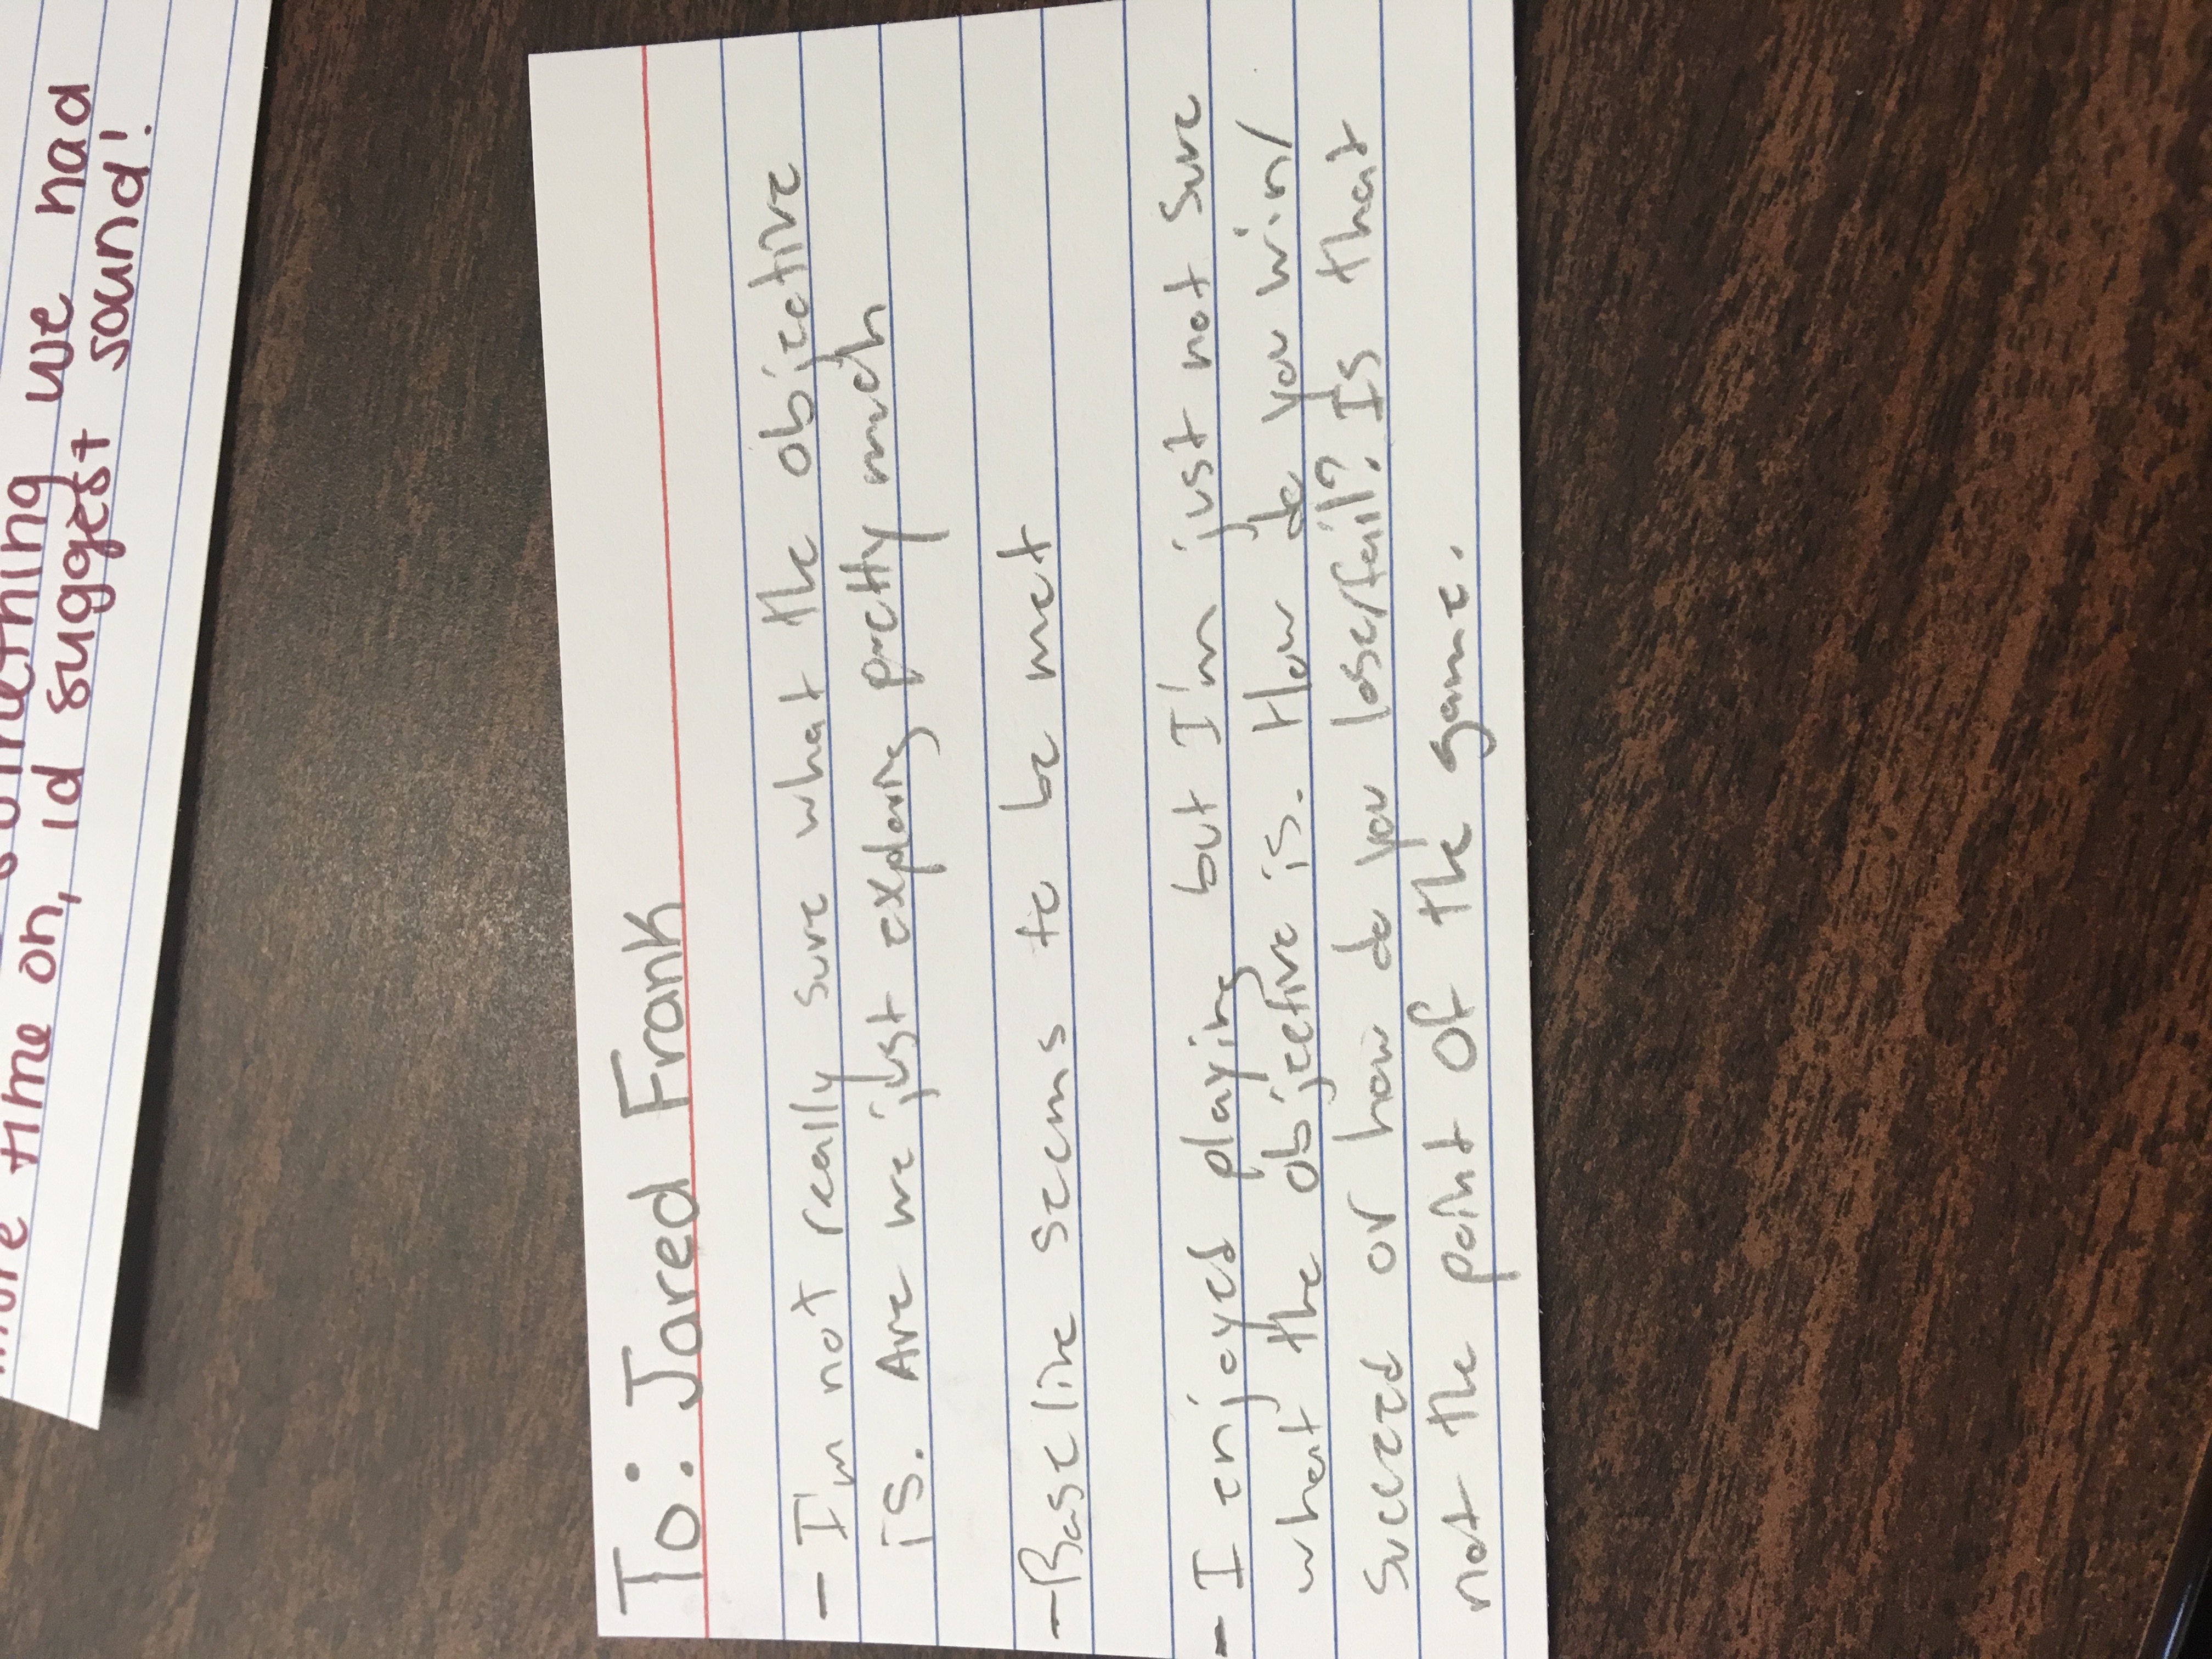 something we had
more time on, id suggest sound!
To: Jared Frank
- I'm not really sure what the objective
is. Are we just exploring pretty much
- Baseline seems to be met
- I enjoyed playing but I'm just not sure
what the objective is. How do you win/
succeed or how do you lose/fail? Is that
not the point of the game.